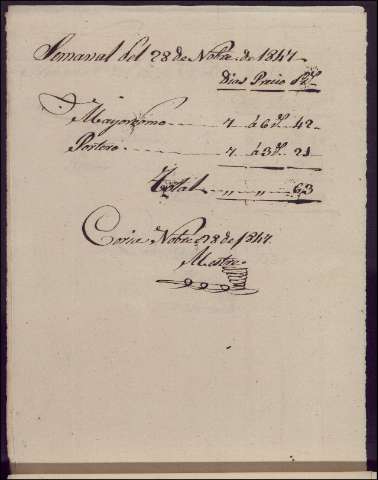 Semanal del 28 de Nobre. de 1847
Dias Precio Rs.
Mayordomo 7 á 6 rs. 42
Portero 7 á 3 rs. 21
Total " " 63
Coria Nobre. 28 de 1847.
Mestre